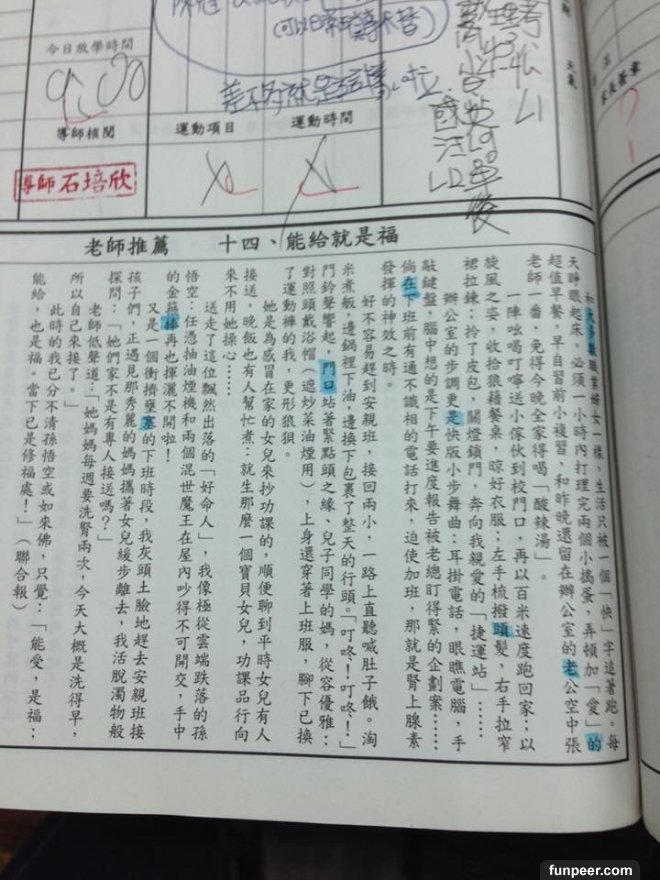 今日放學時間
9:00
導師核閱
運動項目
運動時間
導師石培欣
差不多就是這樣啦
老師推薦
十四、能給就是福
和大多數職業婦女一樣,生活只被一個「快」字追著跑。每
天睜眼起床,必須一小時內打理完兩個小搗蛋,弄頓加「愛」的
超值早餐,早自習前小複習,和昨晚還留在辦公室的老公空中張
老師一番,免得今晚全家得喝「酸辣湯」。
一陣咄喝叮嚀送小傢伙到校門口,再以百米速度跑回家;以
旋風之姿,收拾狼藉餐桌,晾好衣服;左手梳撥頭髮,右手拉窄
裙拉鍊;拎了皮包,關燈鎖門,奔向我親愛的「捷運站」……
辦公室的步調更是快版小步舞曲:耳掛電話,眼瞧電腦,手
敲鍵盤,腦中想的是下午要進度報告被老總盯得緊的企劃案……
倘在下班前有通不識相的電話打來,迫使加班,那就是腎上腺素
發揮的神效之時。
好不容易趕到安親班,接回兩小,一路上直聽喊肚子餓。淘
米煮飯,邊鍋裡下油,邊換下包裹了整天的行頭。「叮咚!叮咚!」
門鈴聲響起,門口站著緊點頭之緣、兒子同學的媽,從容優雅;
對照頭戴浴帽(遮炒菜油煙用),上身還穿著上班服,腳下已換
了運動褲的我,更形狼狽。
她是為感冒在家的女兒來抄功課的,順便聊到平時女兒有人
接送,晚飯也有人幫忙煮;就生那麼一個寶貝女兒,功課品行向
來不用她操心……
送走了這位飄然出落的「好命人」,我像極從雲端跌落的孫
悟空:任憑抽油煙機和兩個混世魔王在屋內吵得不可開交,手中
的金箍棒再也揮灑不開啦!
又是一個衝擠壅塞的下班時段,我灰頭土臉地趕去安親班接
孩子們,正遇見那秀麗的媽媽攜著女兒緩步離去,我活脫濁物般
探問:「她們家不是有專人接送嗎?」
老師低聲道:「她媽媽每週要洗腎兩次,今天大概是洗得早,
所以自己來接了。」
此時的我已分不清孫悟空或如來佛,只覺:「能愛,是福;
能給,也是福。當下已是修福處!」(聯合報)
funpeer.com